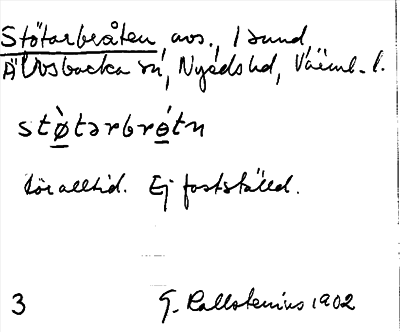 Stötarbråten, avs., i sund,
Älvsbacka sn, Nyeds hd, Värml. l.
stø̀tərbrɵ́tn
Lör alltid. Ej fastställd.
3 G. Kallstenius 1902